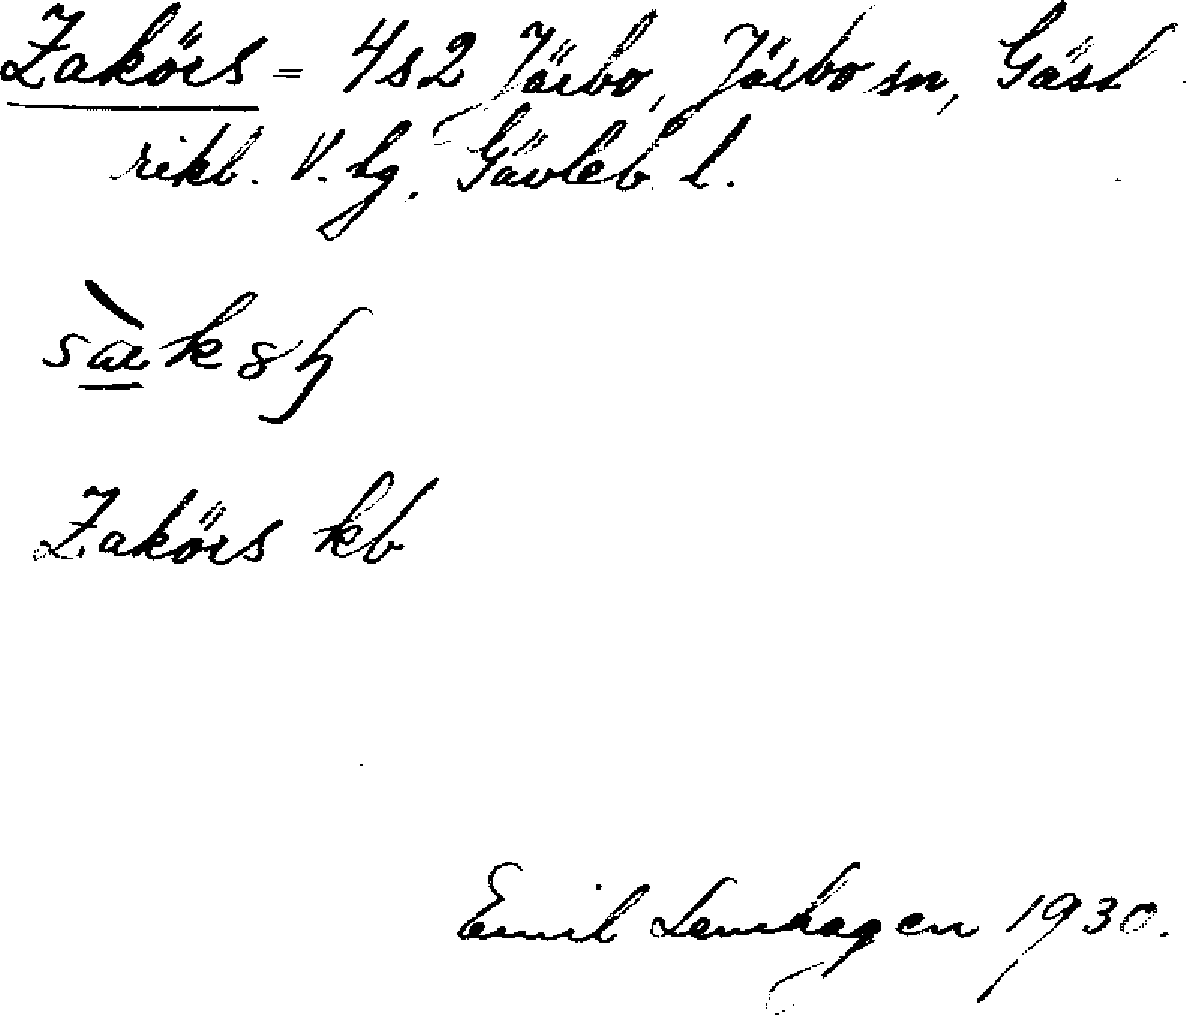 Zakörs = 4s2 Järbo, Järbo sn, Gäst
rikl. V. hg. Gävleb. l.
Zakörs kb
Emil Lenhagen 1930.